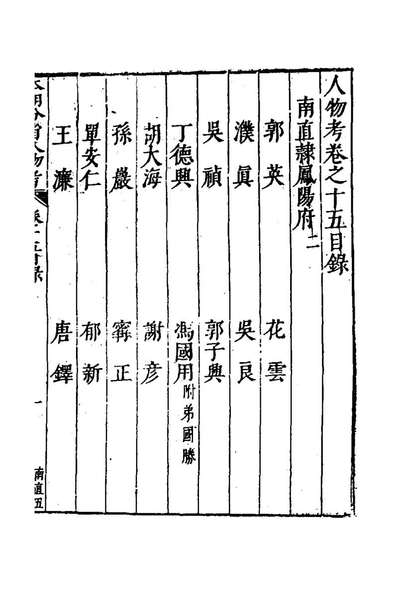 人物考卷之十五目錄
南直隸鳳陽府二
郭英 花雲
濮眞 吳良
吳禎 郭子興
丁德興 馮國用附弟國勝
胡大海 謝彦
孫嚴 寗正
單安仁 郁新
王濂 唐鐸
本朝分省人物考 卷十五目錄 一 南直五